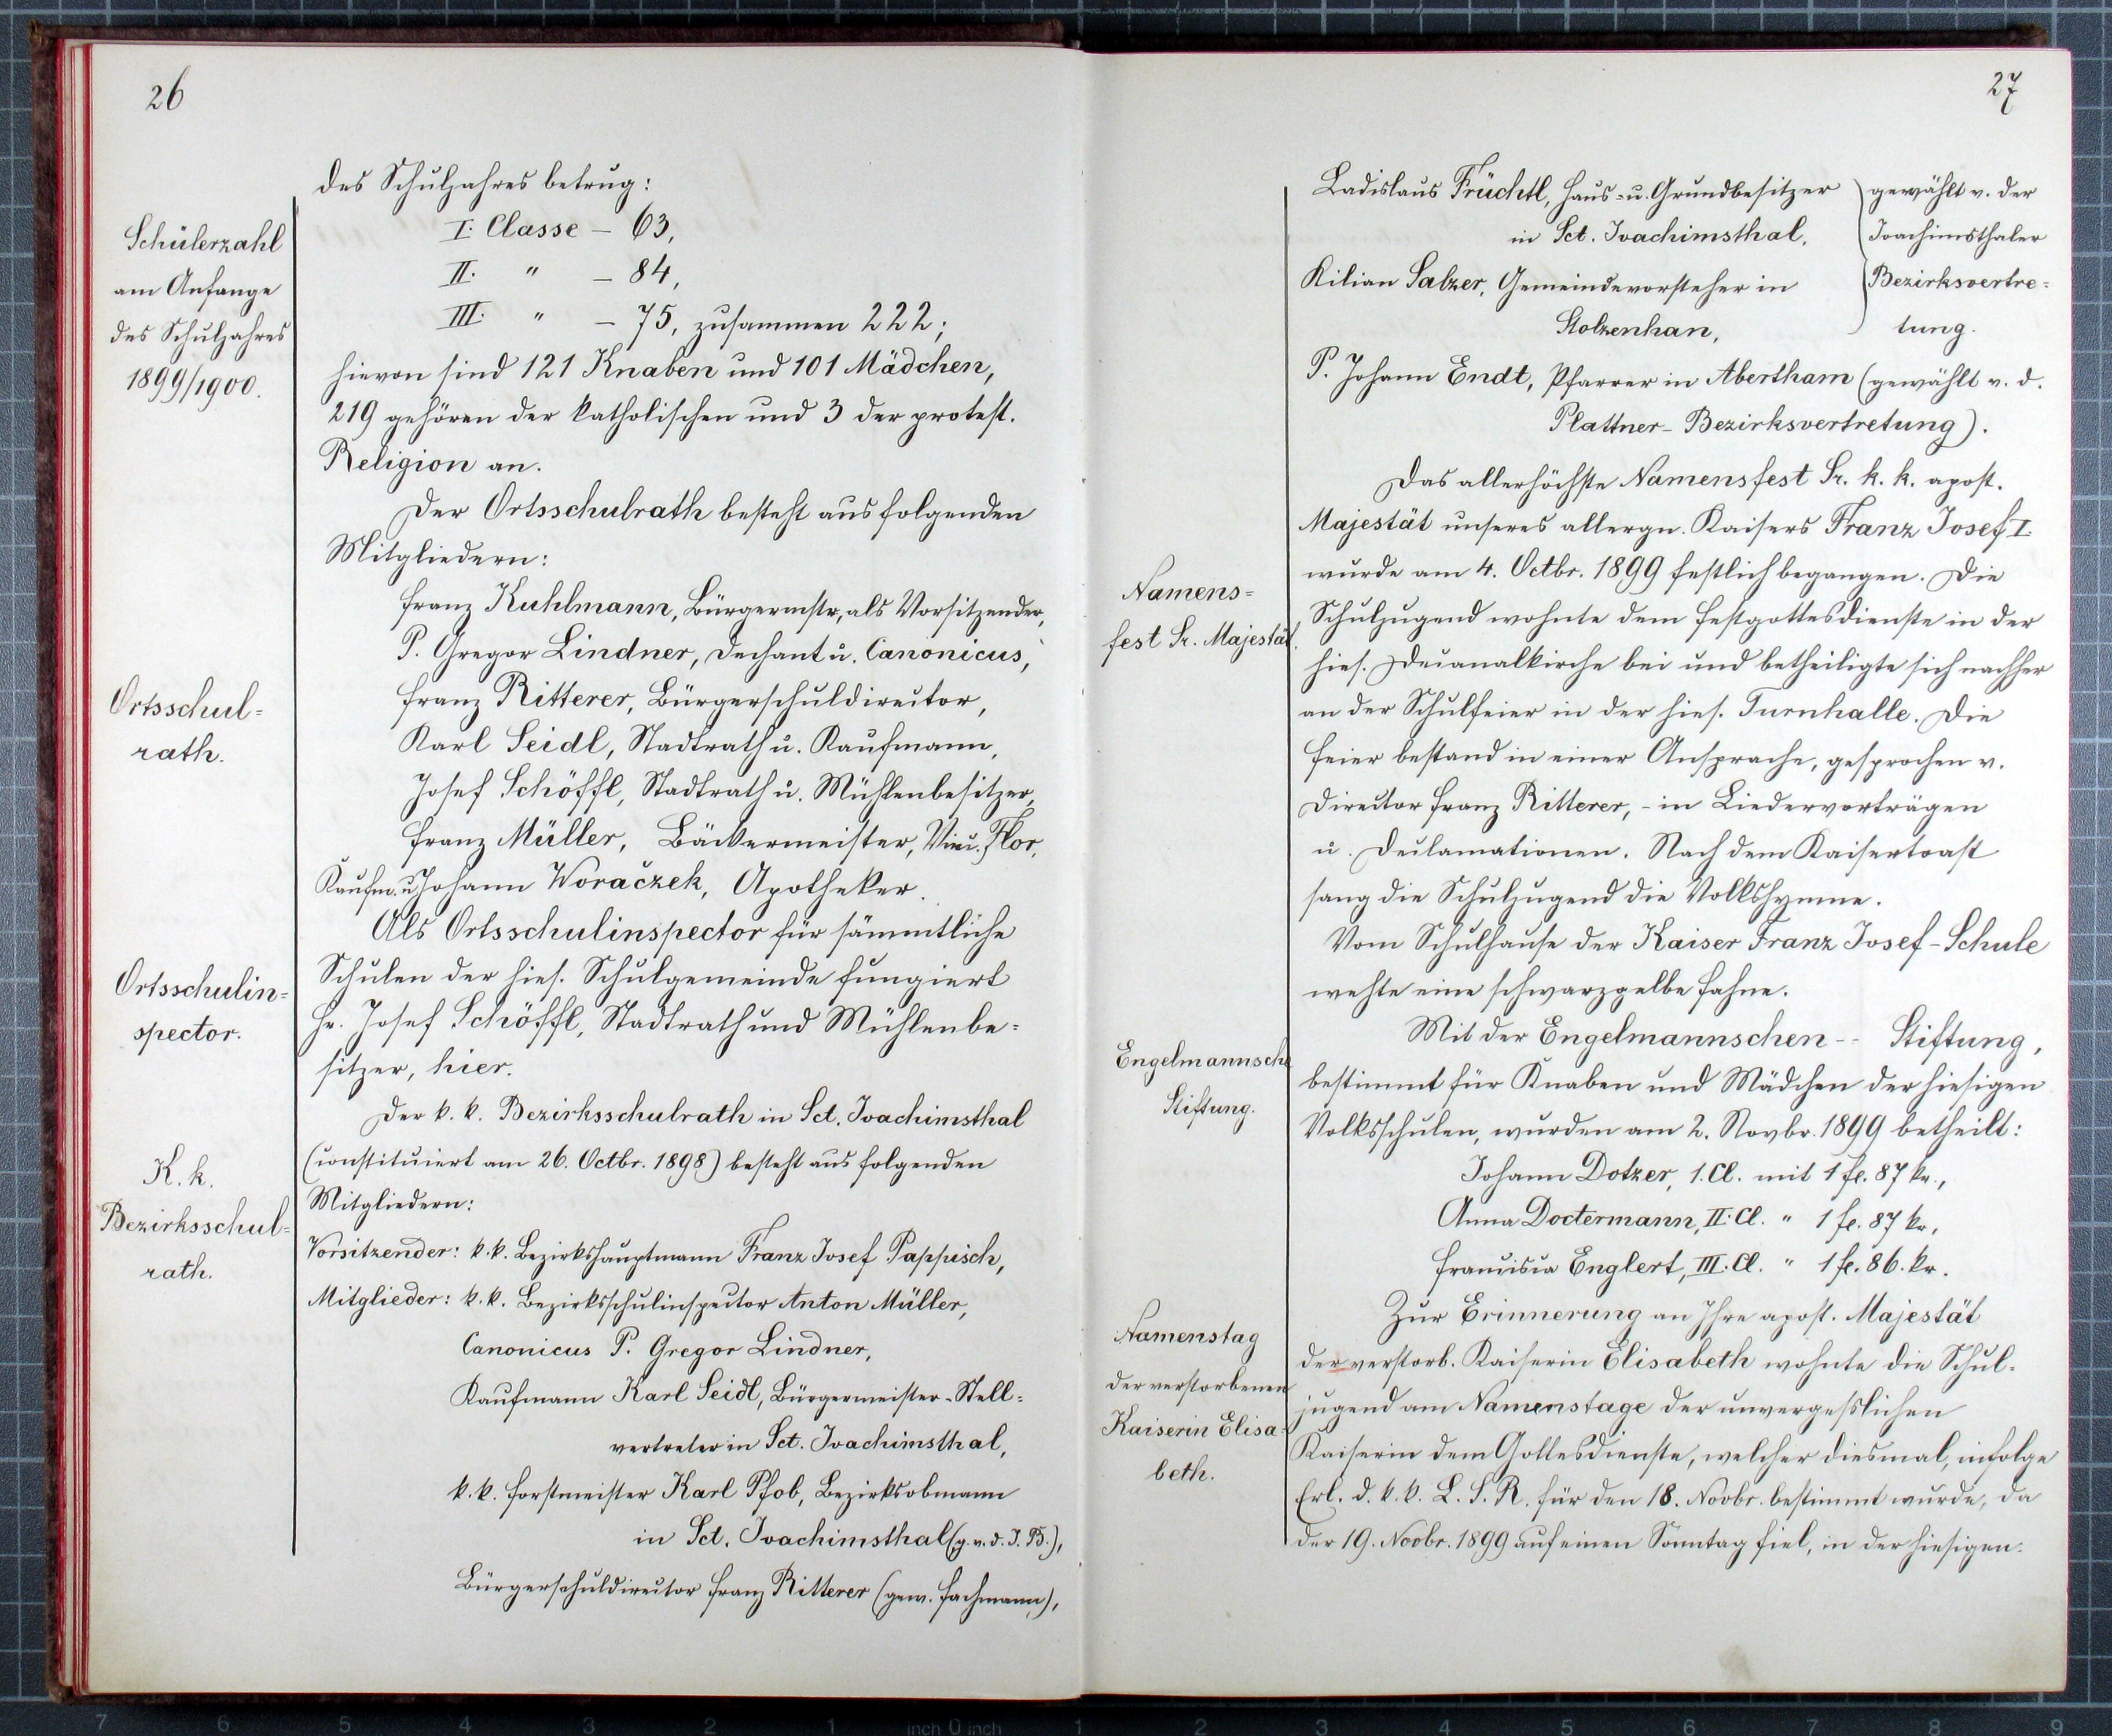 26
des Schuljahres betrug:
I. Classe – 63,
II. " – 84,
III. " – 75, zusammen 222;
hievon sind 121 Knaben und 101 Mädchen,
219 gehören der katholischen und 3 der protest.
Religion an.
Schülerzahl
am Anfange
des Schuljahres
1899/1900.
Der Ortsschulrath besteht aus folgenden
Mitgliedern:
Franz Kuhlmann, Bürgermstr., als Vorsitzender,
P. Gregor Lindner, Dechant u. Canonicus,
Franz Ritterer, Bürgerschuldirector,
Karl Seidl, Stadtrath u. Kaufmann,
Josef Schöffl, Stadtrath u. Mühlenbesitzer,
Franz Müller, Bäckermeister, Vinc. Flor,
Kaufm. u. Johann Woraczek, Apotheker.
Ortsschul=
rath.
Als Ortsschulinspector für sämmtliche
Schulen der hies. Schulgemeinde fungiert
Hr. Josef Schöffl, Stadtrath und Mühlenbe=
sitzer, hier.
Ortsschulin=
spector.
Der k. k. Bezirksschulrath in Sct. Joachimsthal
(constituiert am 26. Octbr. 1898) besteht aus folgenden
Mitgliedern:
Vorsitzender: k. k. Bezirkshauptmann Franz Josef Pappisch,
Mitglieder: k. k. Bezirksschulinspector Anton Müller,
Canonicus P. Gregor Lindner,
Kaufmann Karl Seidl, Bürgermeister-Stell=
vertreter in Sct. Joachimsthal,
k. k. Forstmeister Karl Pfob, Bezirksobmann
in Sct. Joachimsthal (g. v. d. J. B.),
Bürgerschuldirector Franz Ritterer (gew. Fachmann),
K. k.
Bezirksschul=
rath.
27
Ladislaus Früchtl, Haus- u. Grundbesitzer
in Sct. Joachimsthal,
Kilian Salzer, Gemeindevorsteher in
Stolzenhan,
gewählt v. der
Joachimsthaler
Bezirksvertre=
tung.
P. Johann Endt, Pfarrer in Abertham (gewählt v. d.
Plattner-Bezirksvertretung).
Das allerhöchste Namensfest Sr. k. k. apost.
Majestät unseres allergn. Kaisers Franz Josef I.
wurde am 4. Octbr. 1899 festlich begangen. Die
Schuljugend wohnte dem Festgottesdienste in der
hies. Decanalkirche bei und betheiligte sich nachher
an der Schulfeier in der hies. Turnhalle. Die
Feier bestand in einer Ansprache, gesprochen v.
Director Franz Ritterer, - in Liedervorträgen
u. Declamationen. Nach dem Kaisertoast
sang die Schuljugend die Volkshymne.
Vom Schulhause der Kaiser Franz Josef-Schule
wehte eine schwarzgelbe Fahne.
Namens=
fest Sr. Majestät.
Mit der Engelmannschen-- Stiftung,
bestimmt für Knaben und Mädchen der hiesigen
Volksschulen, wurden am 2. Novbr. 1899 betheilt:
Johann Dotzer, 1. Cl. mit 1 fl. 87 kr.,
Anna Doctermann, II. Cl. " 1 fl. 87 kr.,
Francisca Englert, III. Cl. " 1 fl. 86. kr.
Engelmannsche
Stiftung.
Zur Erinnerung an Ihre apost. Majestät
der verstorb. Kaiserin Elisabeth wohnte die Schul-
jugend am Namenstage der unvergesslichen
Kaiserin dem Gottesdienste, welcher diesmal, infolge
Erl. d. k. k. L. S. R. für den 18. Novbr. bestimmt wurde, da
der 19. Novbr. 1899 auf einen Sonntag fiel, in der hiesigen
Namenstag
der verstorbenen
Kaiserin Elisa=
beth.
7 6 5 4 3 2 1 inch 0 inch 1 2 3 4 5 6 7 8 9